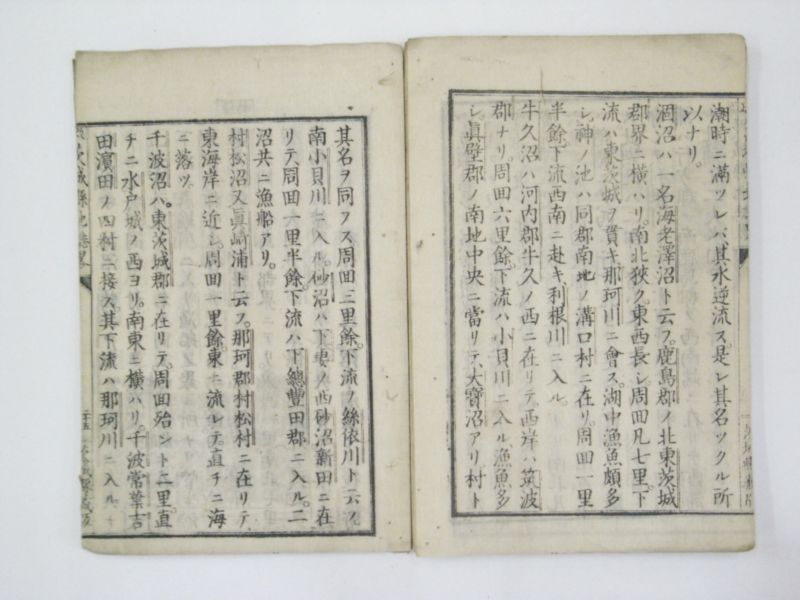 潮時ニ滿ツレバ、其水逆流ス。是レ其名ツクル所
以ナリ。
涸沼ハ一名海老澤沼ト云フ。鹿島郡ノ北東茨城
郡界ニ横ハリ。南北狹ク。東西長シ。周囬凡七里。下
流ハ東茨城ヲ貫キ、那珂川ニ會ス。湖中漁魚頗多
シ。神ノ池ハ同郡南地ノ溝口村ニ在リ。周囬一里
半餘。下流西南ニ赴キ、利根川ニ入ル。
牛久沼ハ河内郡牛久ノ西ニ在リテ、西岸ハ筑波
郡ナリ。周囬六里餘。下流ハ小貝川ニ入ル。漁魚多
シ。眞壁郡ノ南地中央ニ當リテ、大寶沼アリ。村ト
其名ヲ同フス。周囬三里餘。下流ノ絲依川ト云フ
南小貝川ニ入ル。砂沼ハ下妻ノ西砂沼新田ニ在
リテ、周囬一里半餘。下流ハ下總豐田郡ニ入ル。二
沼共ニ漁船アリ。
村松沼又眞崎浦ト云フ。那珂郡村松村ニ在リテ
東海岸ニ近シ。周囬一里餘。東ニ流レテ直チニ海
ニ落ツ。
千波沼ハ東茨城郡ニ在リテ。周囬殆ント二里。直
チニ水戸城ノ西ヨリ。南東ニ横ハリ。千波常葉吉
田濱田ノ四村ニ接ス。其下流ハ那珂川ニ入ル。
茨城縣地誌畧